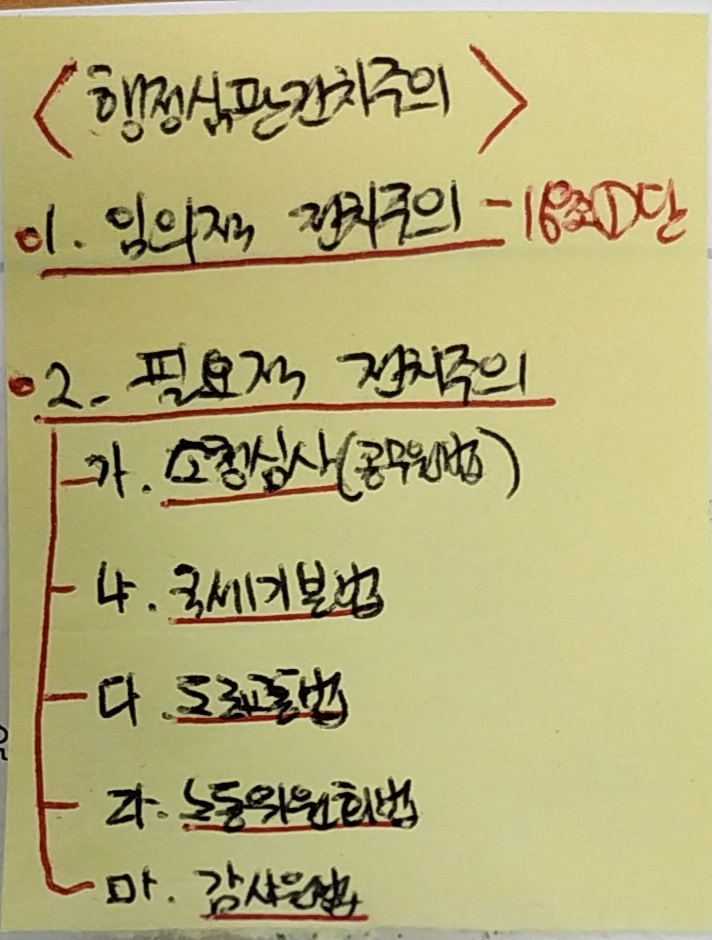 <행정심판전치주의>
1. 임의적 전치주의 - 18조①단
2. 필요적 전치주의
가. 소청심사(공무원법)
나. 국세기본법
다. 도로교통법
라. 노동위원회법
마. 감사원법